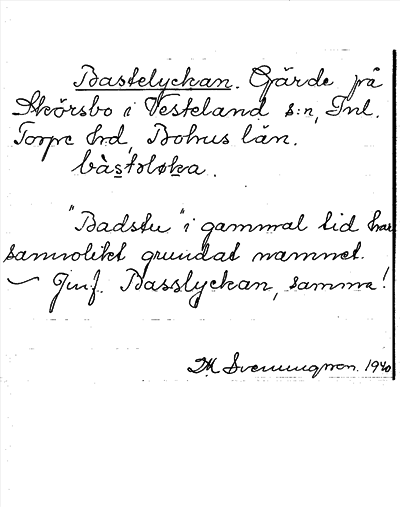 Bastelyckan. Gärde på
Skörsbo i Vesteland s:n, Inl.
Torpe hrd, Bohus län.
bàstɘløka.
"Badstu" i gammal tid har
sannolikt grundat namnet.
— Jmf. Basslyckan, samma!
M Svenungsson. 1940